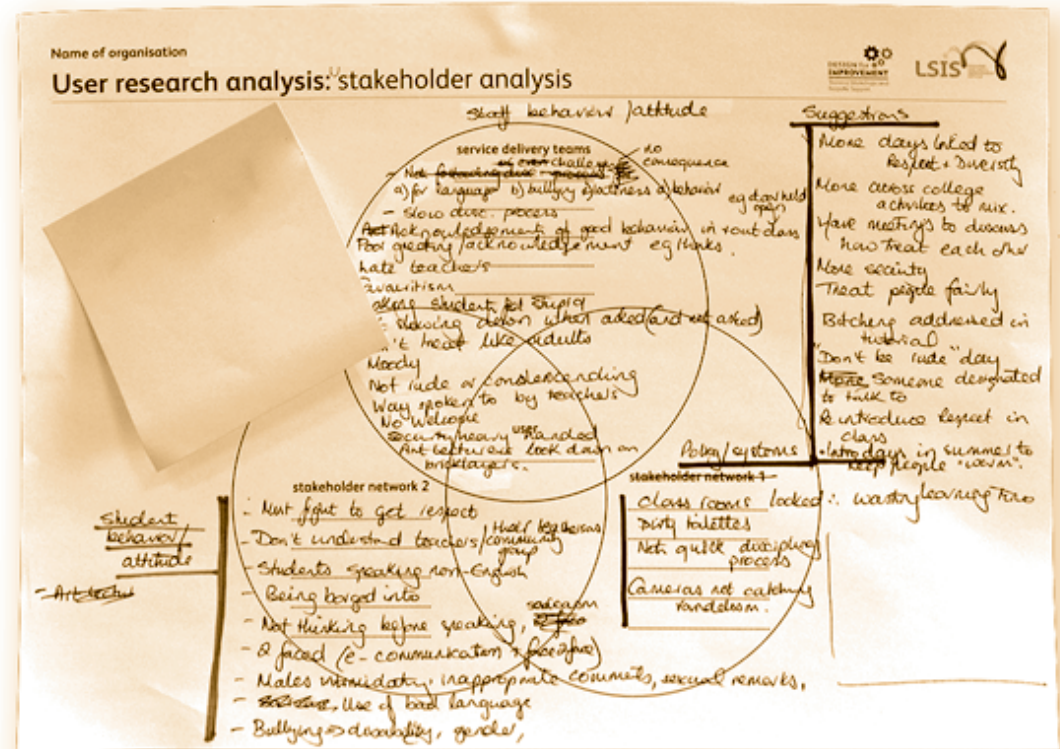 Name of organisation
User research analysis: stakeholder analysis
DESIGN for
IMPROVEMENT
LSIS
Staff behaviour /attitude
service delivery teams
or even challenge
no
consequence
- Not
a) for language b) bullying c) lateness d) behavior
- Slow disc. process
eg door held
open
Acknowledgement of good behaviour in + out class
Poor greeting /acknowledgement eg thanks.
Late teachers
avouritism
aking student for stupid
slowing down when asked (and not asked)
't treat like adults
Moody
Not rude or condescending
Way spoken to by teachers
No Welcome
security heavy handed
user
Art lecturer look down on
bricklayers.
Suggestions
More days linked to
Respect + Diversity
More across college
activities to mix.
Have meetings to discuss
how treat each other
More security
Treat people fairly
Bitching addressed in
tutorial
"Don't be rude" day
More Someone designated
to talk to
Re introduce Respect in
class
- Intro days in summer to
keep people "warm".
Policy/systems
stakeholder network 1
Class rooms locked ∴ wasting learning time
Dirty toilettes
Not quick disciplinary
process
Cameras not catching
vandalism.
stakeholder network 2
Student
behaviour/
attitude
- Must fight to get respect
- Don't understand teachers/
community
group
- Students speaking non-English
- Being barged into
- Not thinking before speaking, sarcasm
- 2 faced (e-communication + face2face)
- Males intimidatory, inappropriate comments, sexual remarks,
- Use of bad language
- Bullying → disability, gender,